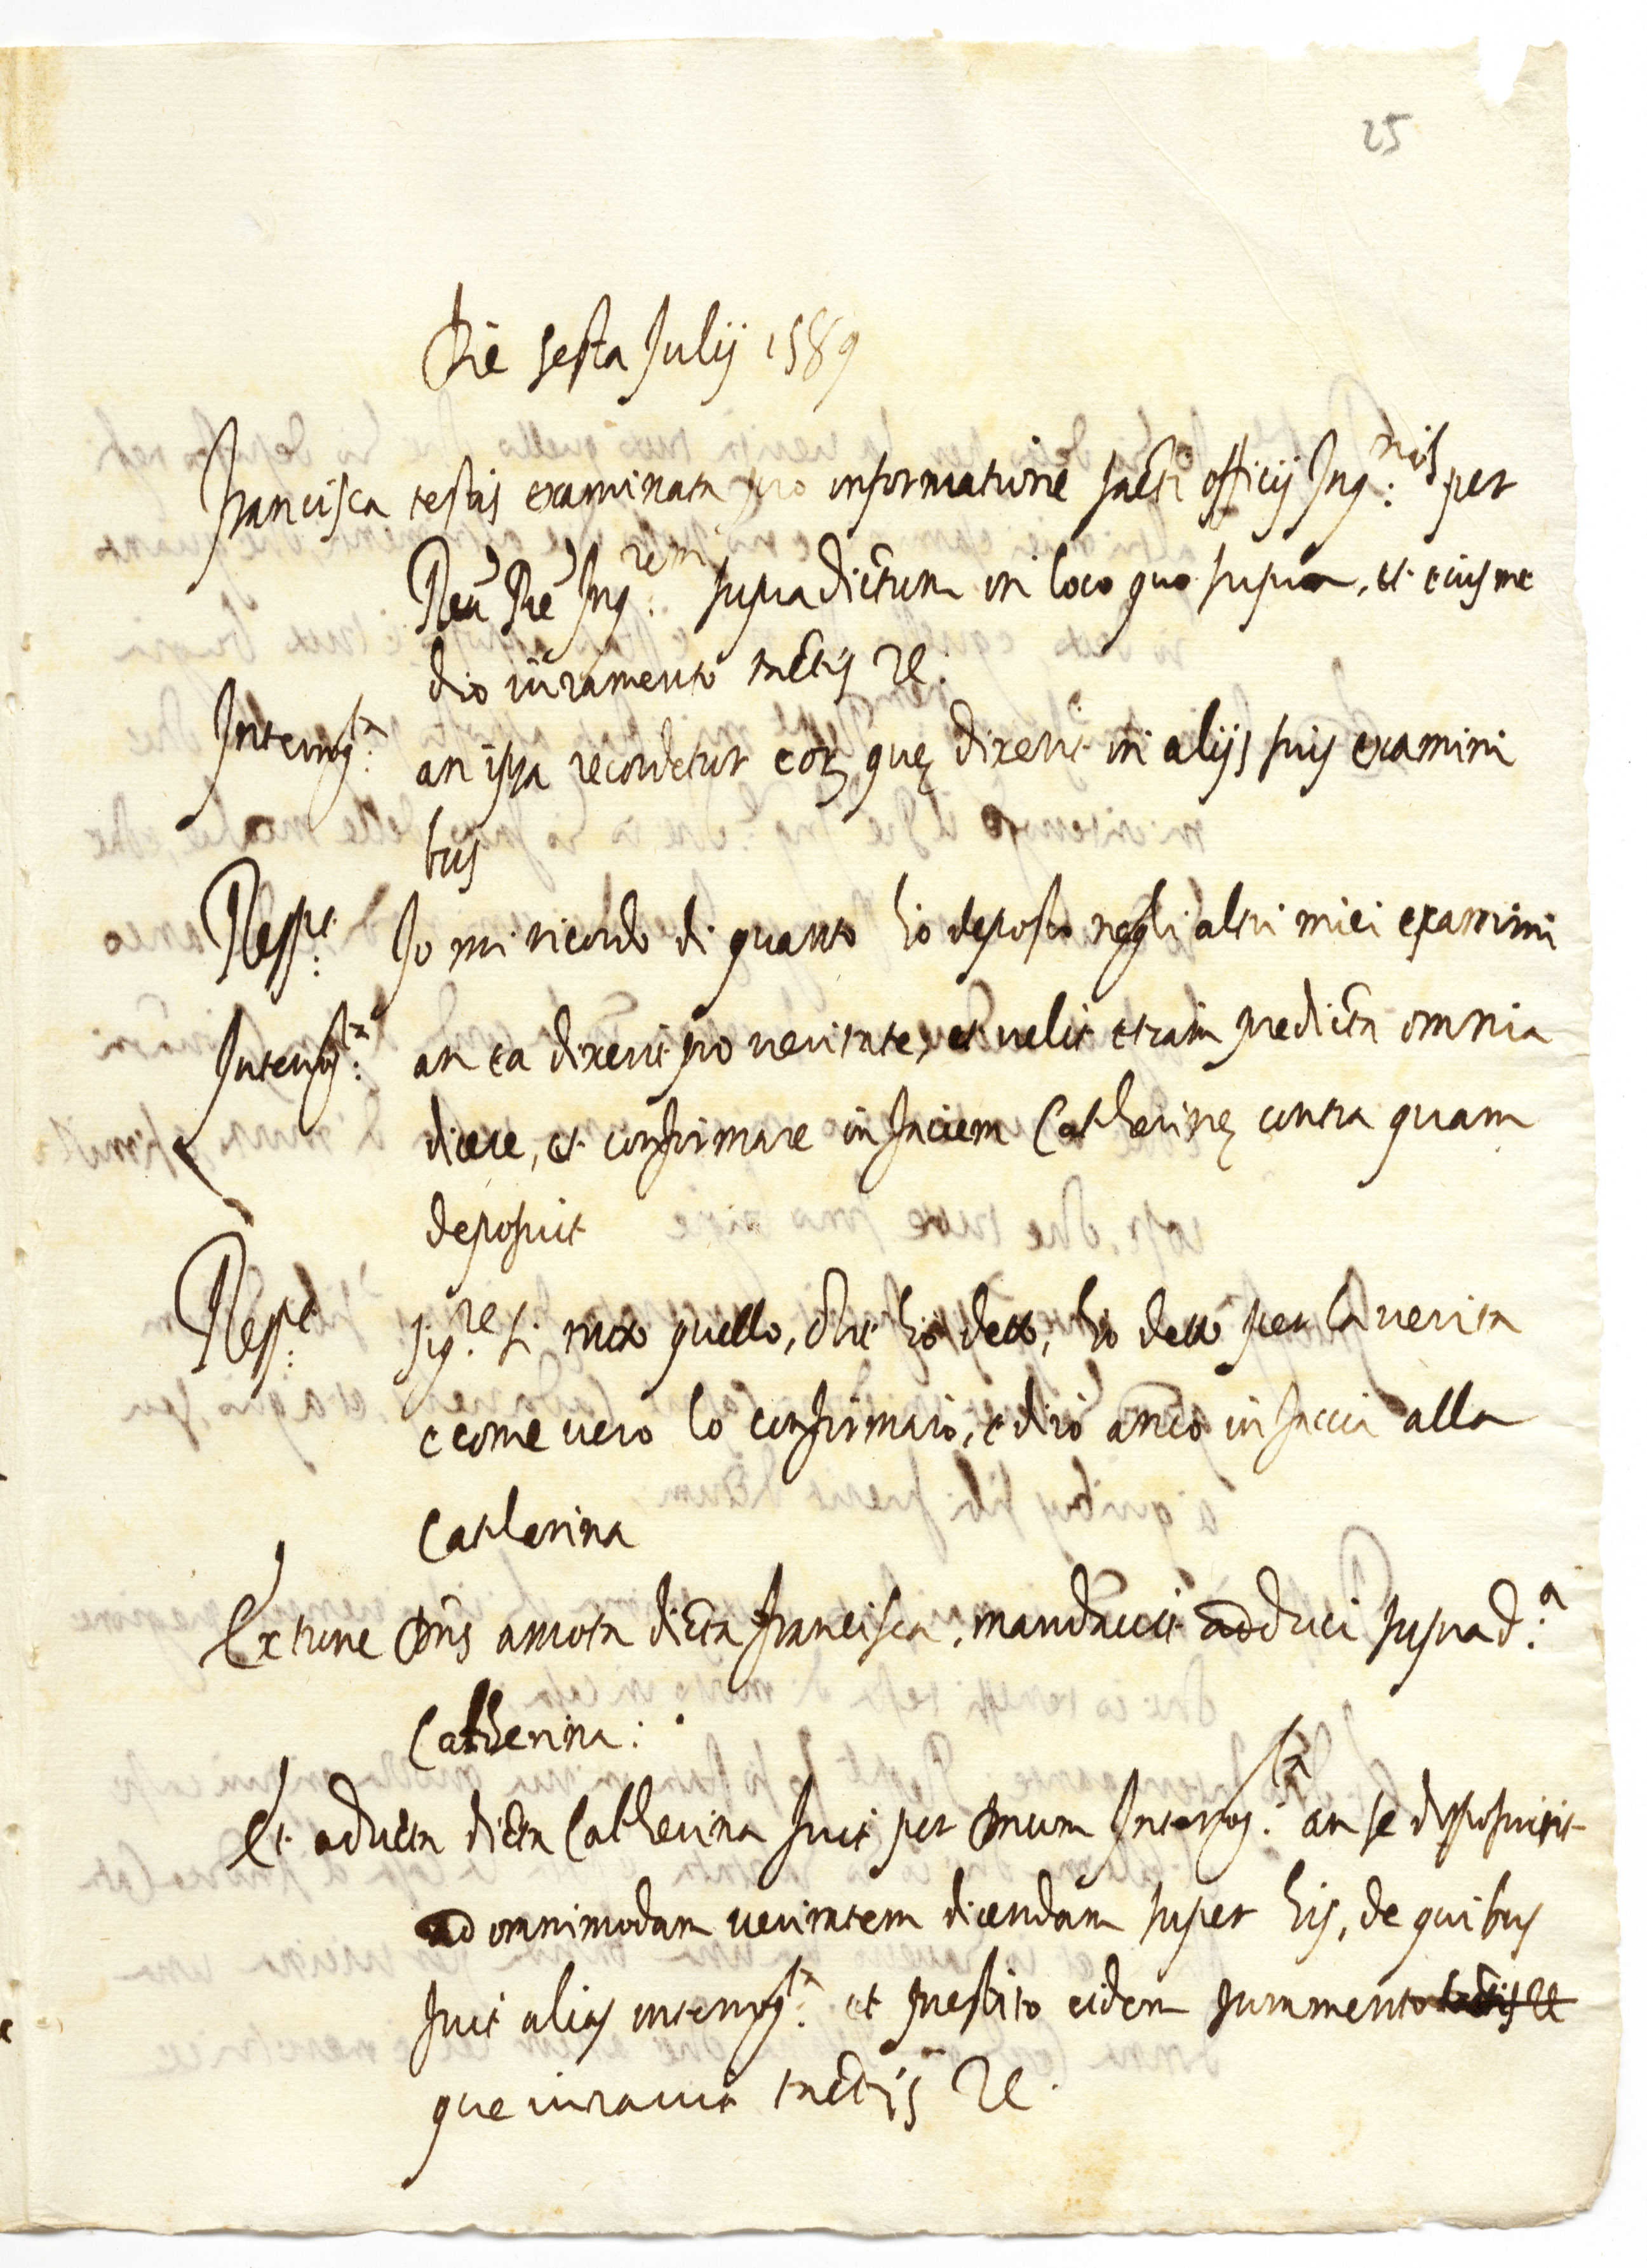 25
Die sesta Julij 1589
Francisca testis examinata pro informatione sācti officij Inq:nis per
Reu) Pre) Inq:rem supradictum in loco quo supra, et eius me
dio iuramento tactis &c.
Interrog:ta an ipsa recordetur eoꝝ quę dixerit in alijs suis examini
bus
Resp:t Io mi ricordo di quanto hò deposto negli altri miei examini
Interrog:ta an ea dixerit pro veritate, et velit etiam predicta omnia
dicere, et confirmare in faciem Catherinę contra quam
deposuit
Resp:t sig:re si tutto quello, che hò detto, hò detto per la verita
e come vero lo confirmarò, e dirò anco in faccia alla
Catherina
Ex tunc Dn̄s amota dicta Francisca, mandavit adduci suprad:a
Catherina:
Et aducta dicta Catherina fuit per Dnum Interrog:ta an se disposuerit
ad omnimodam veritatem dicendam super his, de quibus
fuit alias interrog:ta et prestito eidem iuramento tactis &c
que iuravit tactis &c.